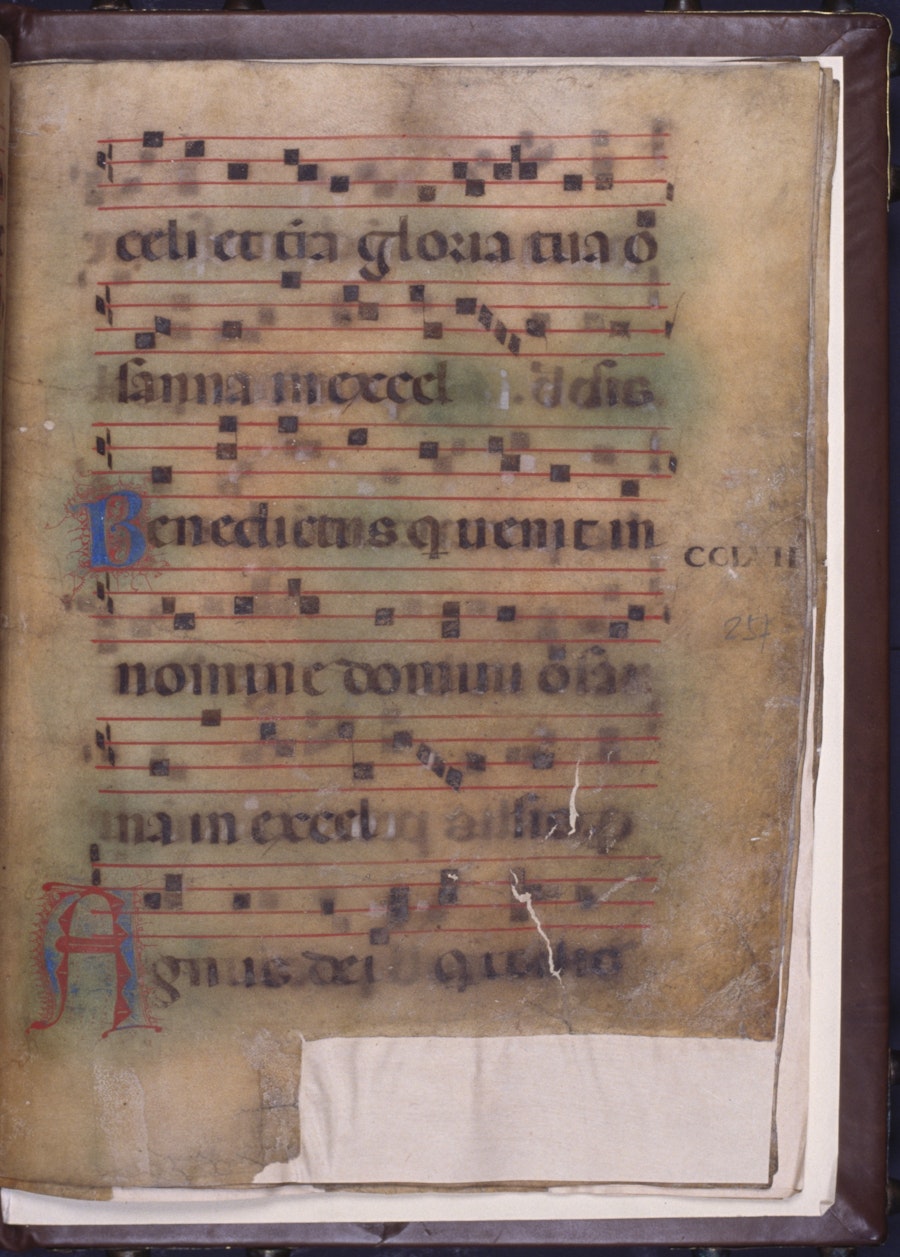 celi et tr̄a gloria tua o
sanna in excel
Benedictus q uenit in
CCLVII
257
nomine domini osan
na in excel
Agnus dei q